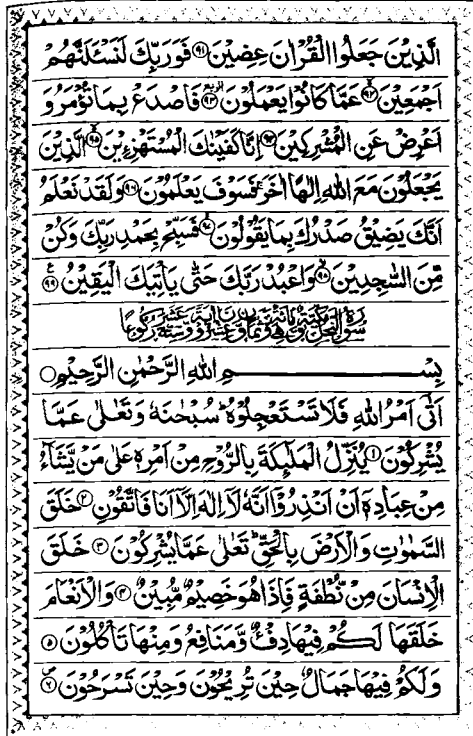 الَّذِيْنَ جَعَلُوا الْقُرْاٰنَ عِضِيْنَ ۹۱ فَوَرَبِّكَ لَنَسْـَٔلَنَّهُمْ
اَجْمَعِيْنَ ۹۲ عَمَّا كَانُوْا يَعْمَلُوْنَ ۹۳ فَاصْدَعْ بِمَا تُؤْمَرُ وَ
اَعْرِضْ عَنِ الْمُشْرِكِيْنَ ۹۴ اِنَّا كَفَيْنٰكَ الْمُسْتَهْزِءِيْنَ ۹۵ الَّذِيْنَ
يَجْعَلُوْنَ مَعَ اللّٰهِ اِلٰهًا اٰخَرَ فَسَوْفَ يَعْلَمُوْنَ ۹۶ وَلَقَدْ نَعْلَمُ
اَنَّكَ يَضِيْقُ صَدْرُكَ بِمَا يَقُوْلُوْنَ ۹۷ فَسَبِّحْ بِحَمْدِ رَبِّكَ وَكُنْ
مِّنَ السّٰجِدِيْنَ ۹۸ وَاعْبُدْ رَبَّكَ حَتّٰى يَاْتِيَكَ الْيَقِيْنُ ۹۹
سورة النحل مكية
بِسْمِ اللّٰهِ الرَّحْمٰنِ الرَّحِيْمِ
اَتٰٓى اَمْرُ اللّٰهِ فَلَا تَسْتَعْجِلُوْهُ سُبْحٰنَهٗ وَتَعٰلٰى عَمَّا
يُشْرِكُوْنَ ۱ يُنَزِّلُ الْمَلٰٓئِكَةَ بِالرُّوْحِ مِنْ اَمْرِهٖ عَلٰى مَنْ يَّشَآءُ
مِنْ عِبَادِهٖٓ اَنْ اَنْذِرُوْٓا اَنَّهٗ لَآ اِلٰهَ اِلَّآ اَنَا فَاتَّقُوْنِ ۲ خَلَقَ
السَّمٰوٰتِ وَالْاَرْضَ بِالْحَقِّ تَعٰلٰى عَمَّا يُشْرِكُوْنَ ۳ خَلَقَ
الْاِنْسَانَ مِنْ نُّطْفَةٍ فَاِذَا هُوَ خَصِيْمٌ مُّبِيْنٌ ۴ وَالْاَنْعَامَ
خَلَقَهَا لَكُمْ فِيْهَا دِفْءٌ وَّمَنَافِعُ وَمِنْهَا تَاْكُلُوْنَ ۵
وَلَكُمْ فِيْهَا جَمَالٌ حِيْنَ تُرِيْحُوْنَ وَحِيْنَ تَسْرَحُوْنَ ۶